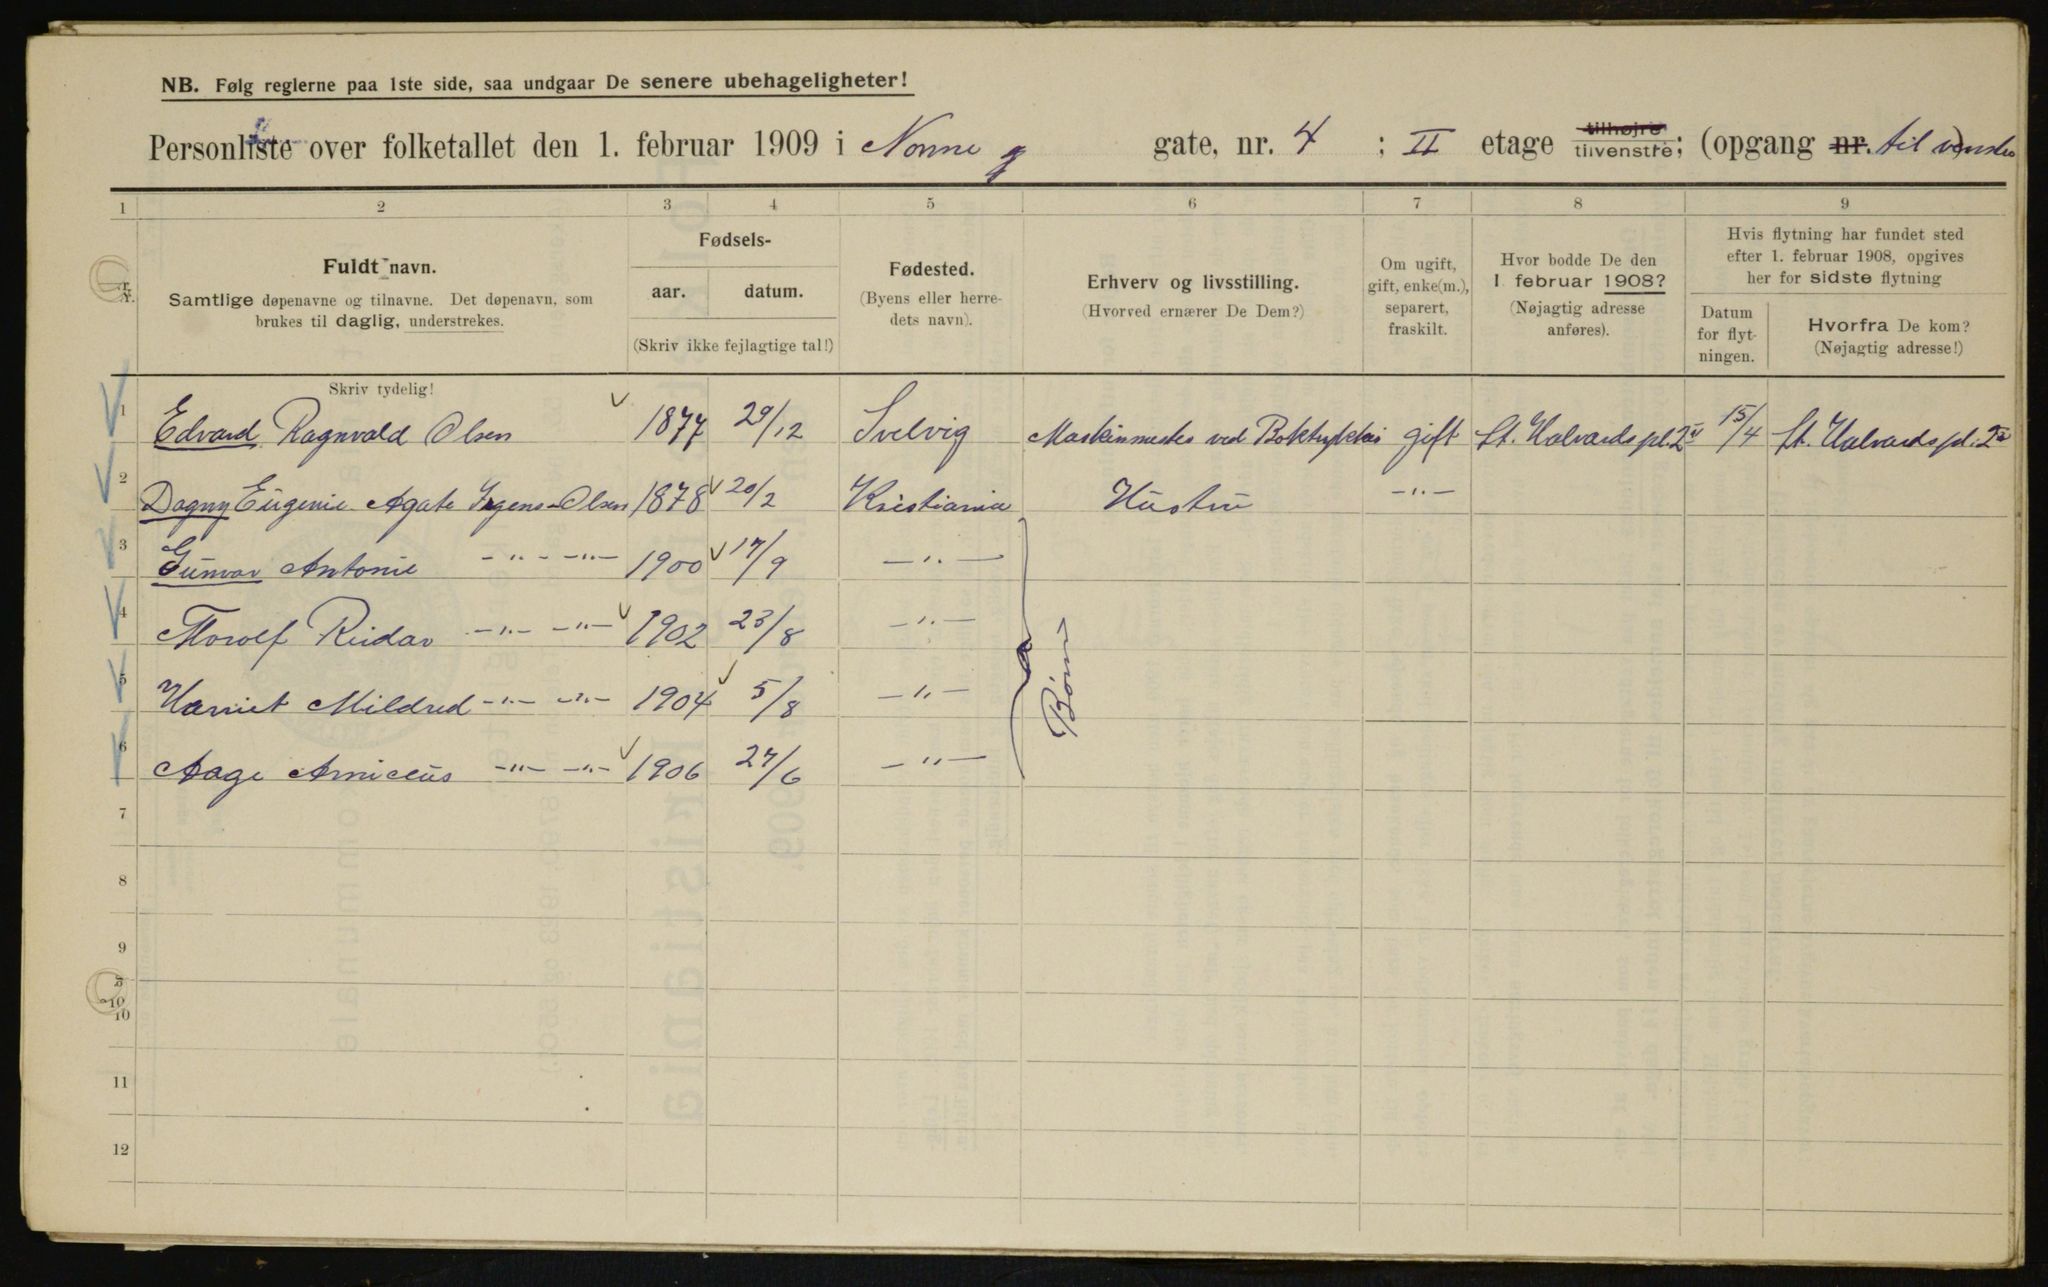 NB. Følg reglerne paa 1ste side, saa undgaar De senere ubehageligheter!
Personliste over folketallet den 1. februar 1909 i Nonne g gate, nr. 4 ; II etage tilhøjre tilvenstre; (opgang nr. til venstre)
1 2 3 4 5 6 7 8 9
Nr.
Fuldt navn.
Samtlige døpenavne og tilnavne. Det døpenavn, som
brukes til daglig, understrekes.
Fødsels-
aar. datum.
(Skriv ikke fejlagtige tal!)
Fødested.
(Byens eller herre-
dets navn).
Erhverv og livsstilling.
(Hvorved ernærer De Dem?)
Om ugift,
gift, enke(m.),
separert,
fraskilt.
Hvor bodde De den
1. februar 1908?
(Nøjagtig adresse
anføres).
Hvis flytning har fundet sted
efter 1. februar 1908, opgives
her for sidste flytning
Datum
for flyt-
ningen.
Hvorfra De kom?
(Nøjagtig adresse!)
Skriv tydelig!
1 Edvard Ragnvald Olsen 1877 29/12 Svelvig Maskinmester ved Boktrykkeri gift St. Halvards pl. 2 15/4 St. Halvards pl. 2
2 Dagny Eugenie Agate Irgens-Olsen 1878 20/2 Kristiania Hustru -"-
3 Gunvor Antonie -"- -"- 1900 17/9 -"-
4 Thorolf Reidar -"- -"- 1902 23/8 -"-
Børn
5 Harriet Mildred -"- -"- 1904 5/8 -"-
6 Aage Amicus -"- -"- 1906 27/6 -"-
7
8
9
10
11
12